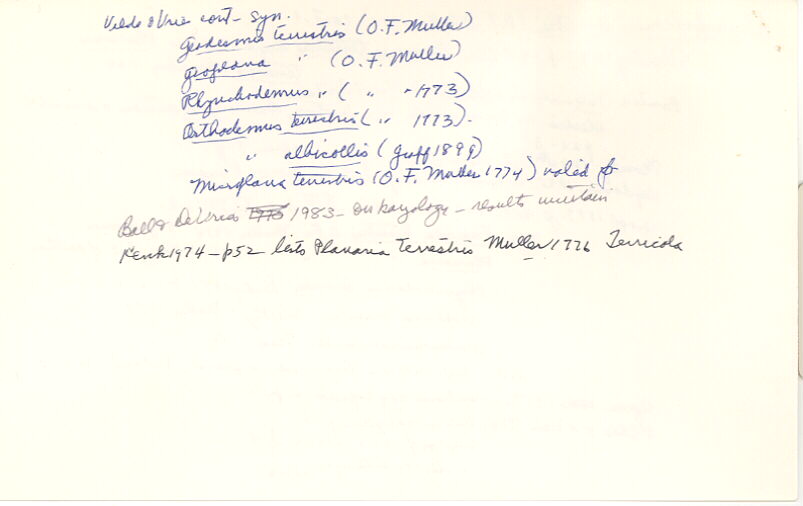 cont- Syn.
Geodesmus terrestris (O.F. Muller)
Geoplana " (O.F. Muller)
Rhynchodemus " ( " -1773)
Orthodemus terrestris ( " 1773).
" albicollis (Graff 1899)
Microplana terrestris (O.F. Muller 1774) valid
Ball & DeVries 1983- on karyology - results uncertain
Kenk 1974 - p52 lists Planaria Terrestris Muller 1776 Terricola